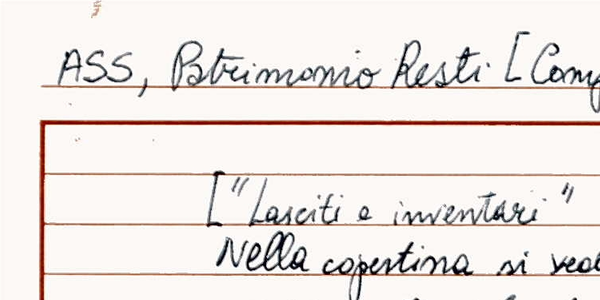 ASS, Patrimonio Resti [Comp
["Lasciti e inventari"
Nella copertina si ved